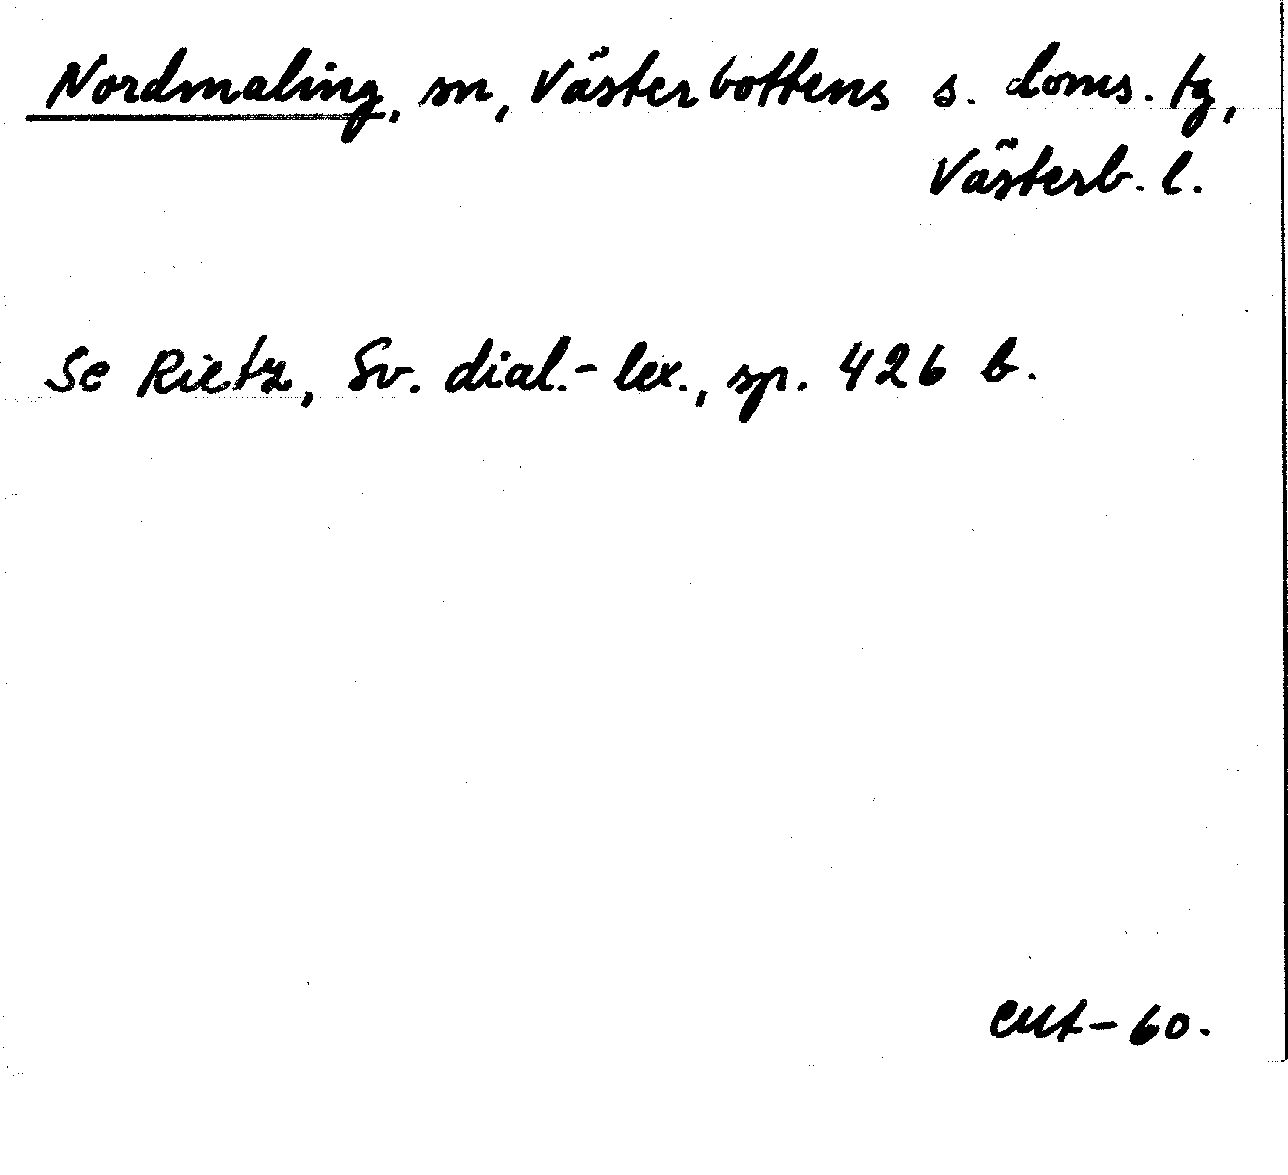 Nordmaling, sn, Västerbottens s. doms. tg,
Västerb. l.
Se Rietz, Sv. dial.-lex., sp. 426 b.
60.